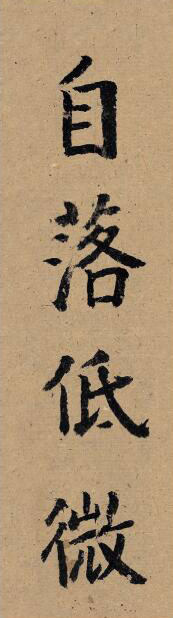 自落低微